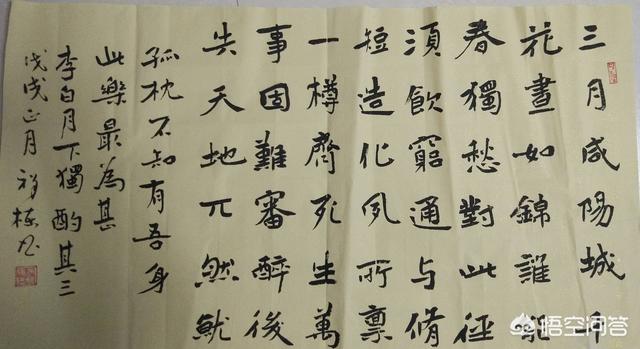 三月咸陽城千
花晝如錦誰能
春獨愁對此徑
須飲窮通与脩
短造化夙所禀
一樽齊死生萬
事固難審醉後
失天地兀然就
孤枕不知有吾身
此樂最為甚
李白月下獨酌其三
戊戌正月
悟空问答